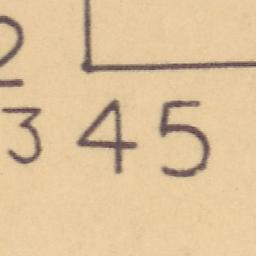 2
3 45